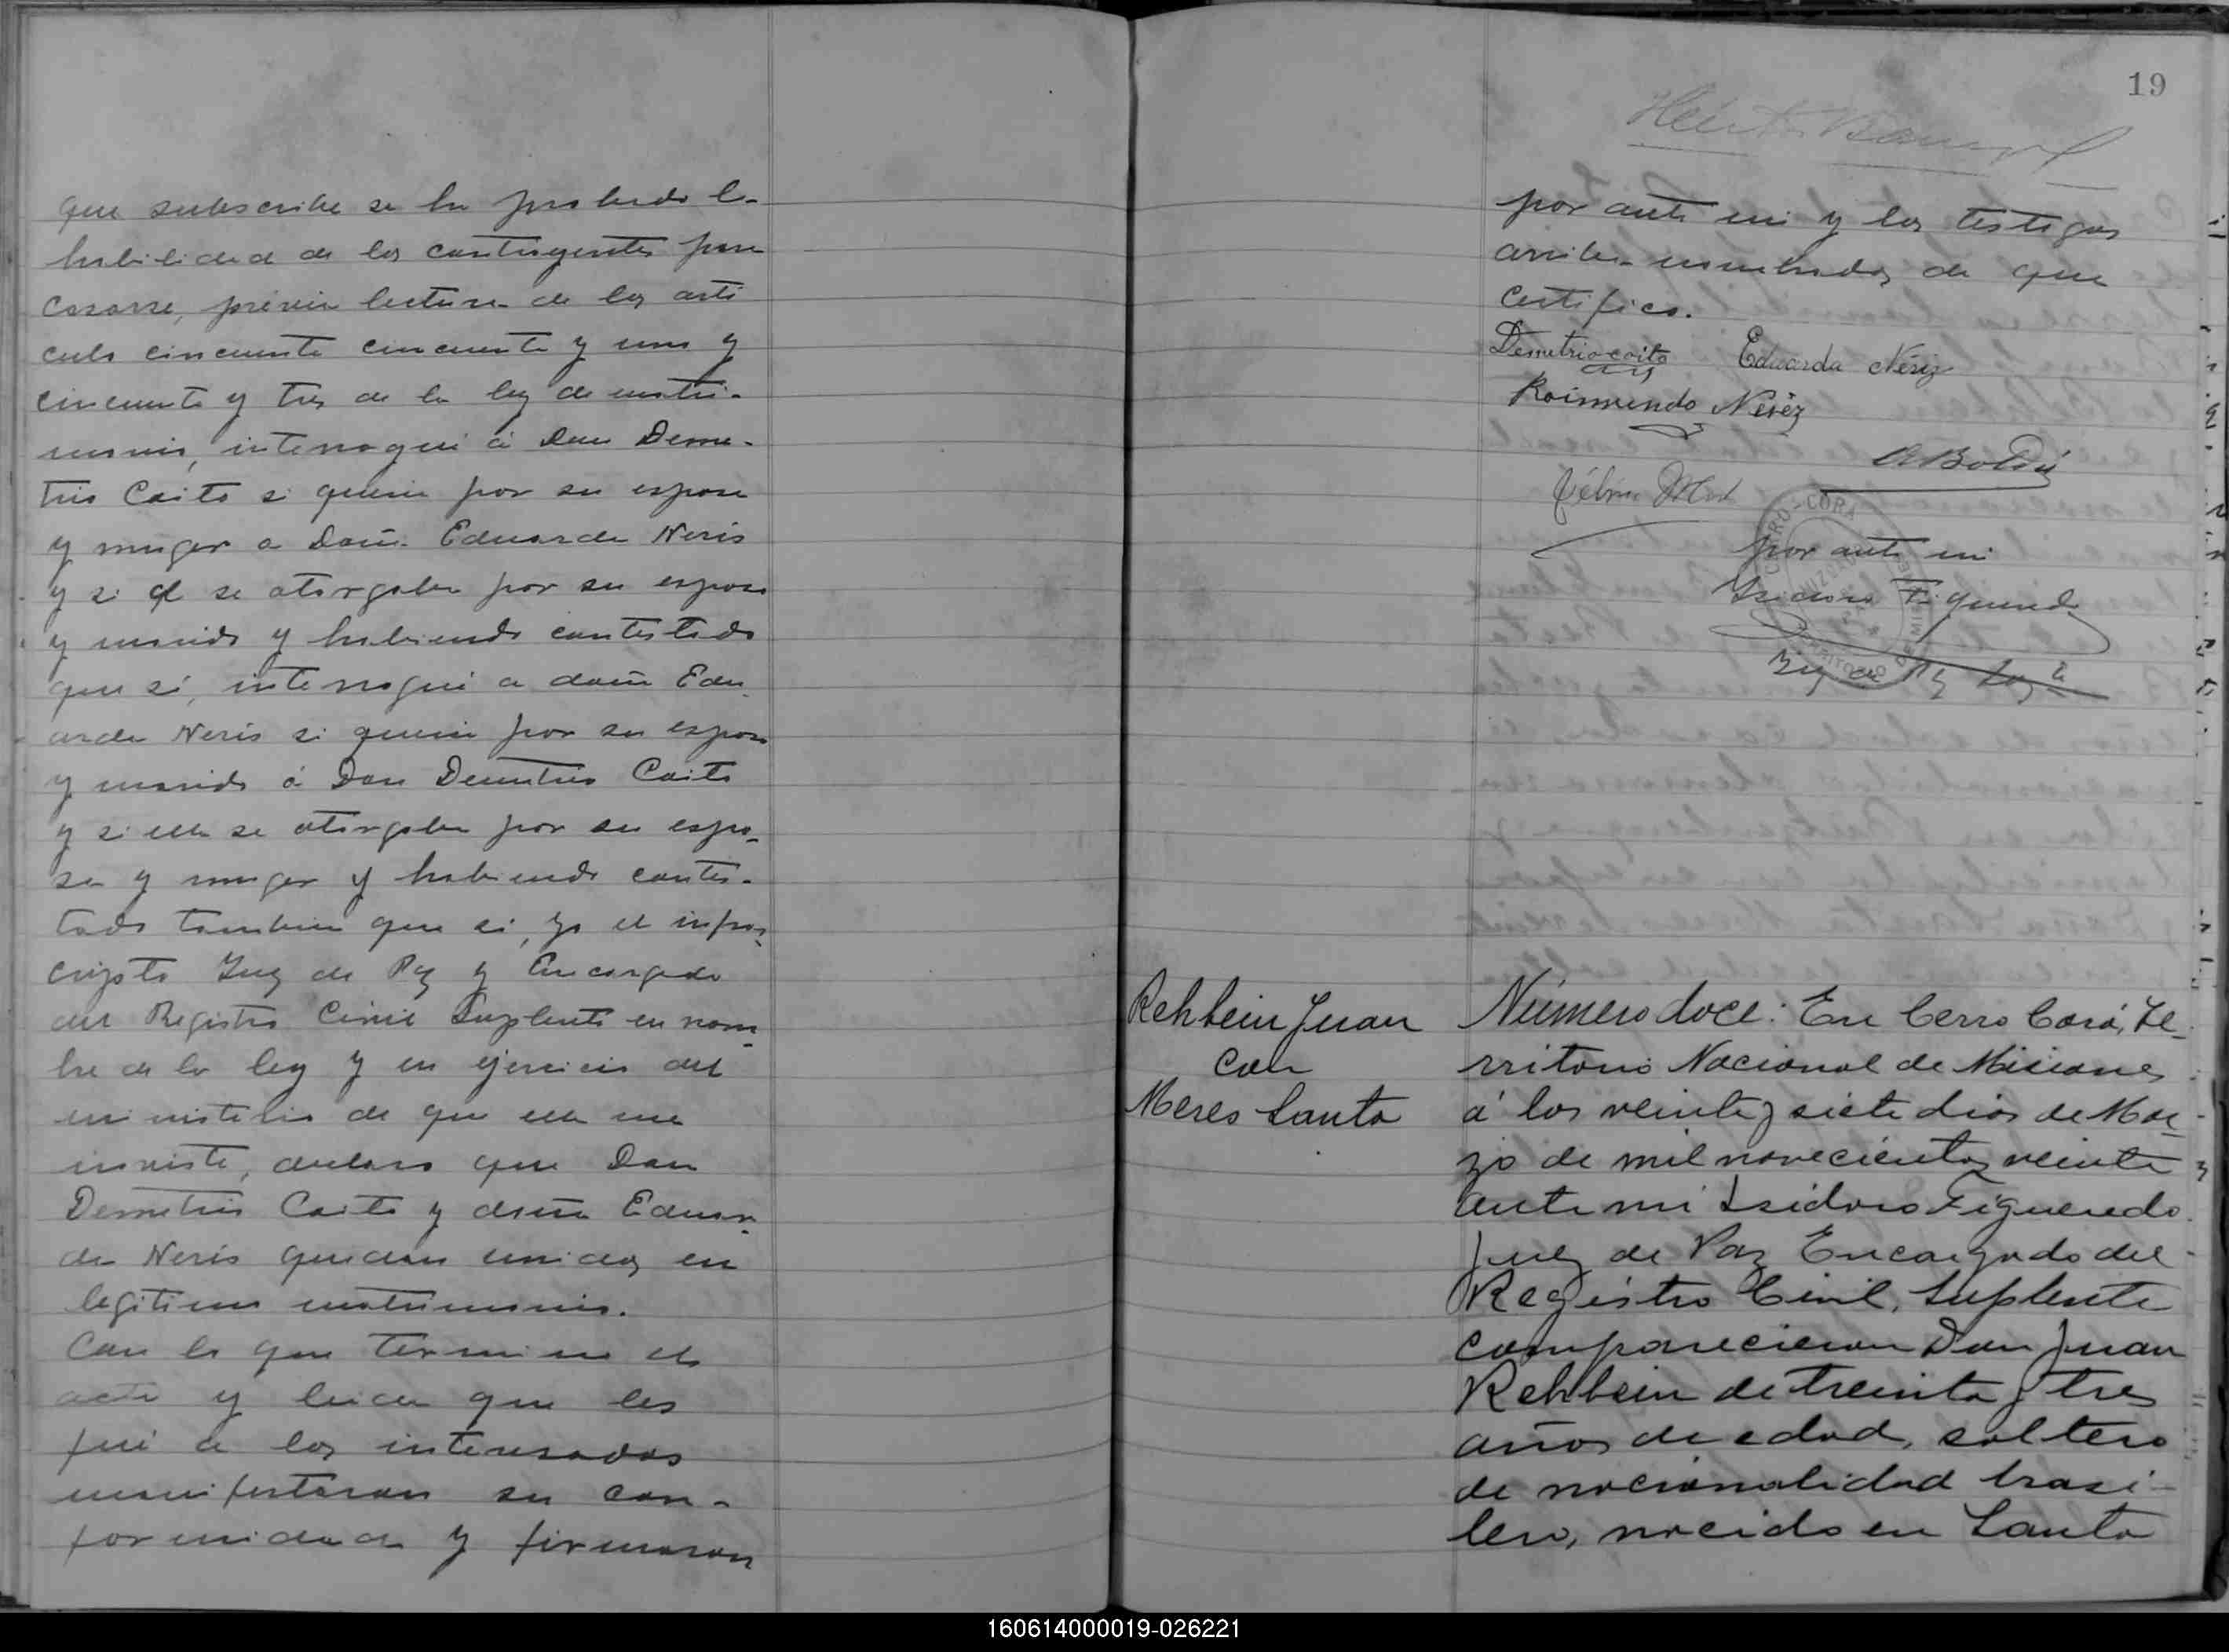 que subscribe se ha probado la
habilidad de los contrayentes para
casarse, previa lectura de los arti
culo cincuenta cincuenta y uno y
cincuenta y tres de la ley de matri-
monio, interrogué á Don Deme-
trio Coito si queria por su esposa
y muger a Doña Eduarda Neris
y si él se otorgaba por su esposo
y marido y habiendo contestado
que sí, interrogué a doña Edu
arda Neris si queria por su esposo
y marido á Don Demetrio Coito
y si ella se otorgaba por su espo-
sa y muger y habiendo contes-
tado tambien que si, yo el infras-
cripto Juez de Paz y Encargado
del Registro Civil Suplente en nom-
bre de la ley y en ejercicio del
ministerio de que ella me
inviste, declaro que Don
Demetrio Coito y doña Eduar-
da Neris quedan unidos en
legitimo matrimonio.
Con lo que termino el
acto y leida que les
fué a los interesados
manifestaron su con-
formidad y firmaron
19
por ante mi y los testigos
arriba nombrados de que
certifico.
Demetrio coito Eduarda Nériz
Raimundo Néréz
CERRO-CORA
por ante mi
Isidoro Figueredo
Juez de Paz
TERRITORIO DE MISIONES
Rehbein Juan
con
Meres Santa
Número doce: En Cerro Corá, Te-
rritorio Nacional de Misiones
á los veinte y siete dias de Mar-
zo de mil novecientos veinte
ante mi Isidoro Figueredo
Juez de Paz Encargado del
Registro Civil, Suplente
comparecieron Don Juan
Rehbein de treinta y tres
años de edad, soltero
de nacionalidad brasi-
lero, nacido en Santa
160614000019-026221